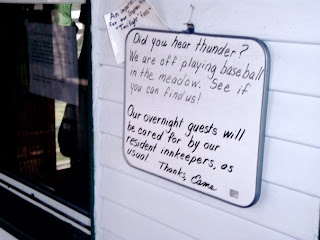 Did you hear thunder?
We are off playing baseball
in the meadow. See if
you can find us!
Our overnight guests will
be cared for by our
resident innkeepers, as
usual. Thanks,